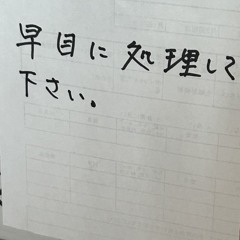 早目に処理して
下さい。